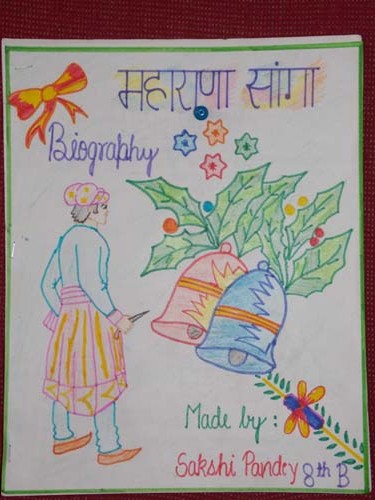 महाराणा सांगा
Biography
Made by :
Sakshi Pandey 8th B